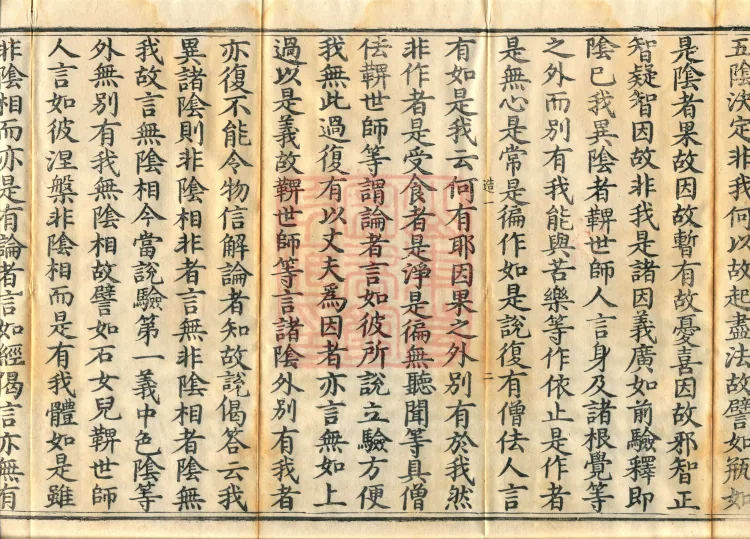 五陰決定非我何以故起盡法故譬如瓶如
是陰者果故因故暫有故憂喜因故邪智正
智疑智因故非我是諸因義廣如前驗釋即
陰已我異陰者鞞世師人言身及諸根覺等
之外而別有我能與苦樂等作依止是作者
是無心是常是徧作如是說復有僧佉人言
造一 二
有如是我云何有耶因果之外別有於我然
非作者是受食者是淨是徧無聽聞等具僧
佉鞞世師等謂論者言如彼所說立驗方便
我無此過復有以丈夫爲因者亦言無如上
過以是義故鞞世師等言諸陰外別有我者
亦復不能令物信解論者知故說偈答云我
異諸陰則非陰相非者言無非陰相者陰無
我故言無陰相今當說驗第一義中色陰等
外無別有我無陰相故譬如石女兒鞞世師
人言如彼涅槃非陰相而是有我體如是雖
非陰相而亦是有論者言如經偈言亦無有